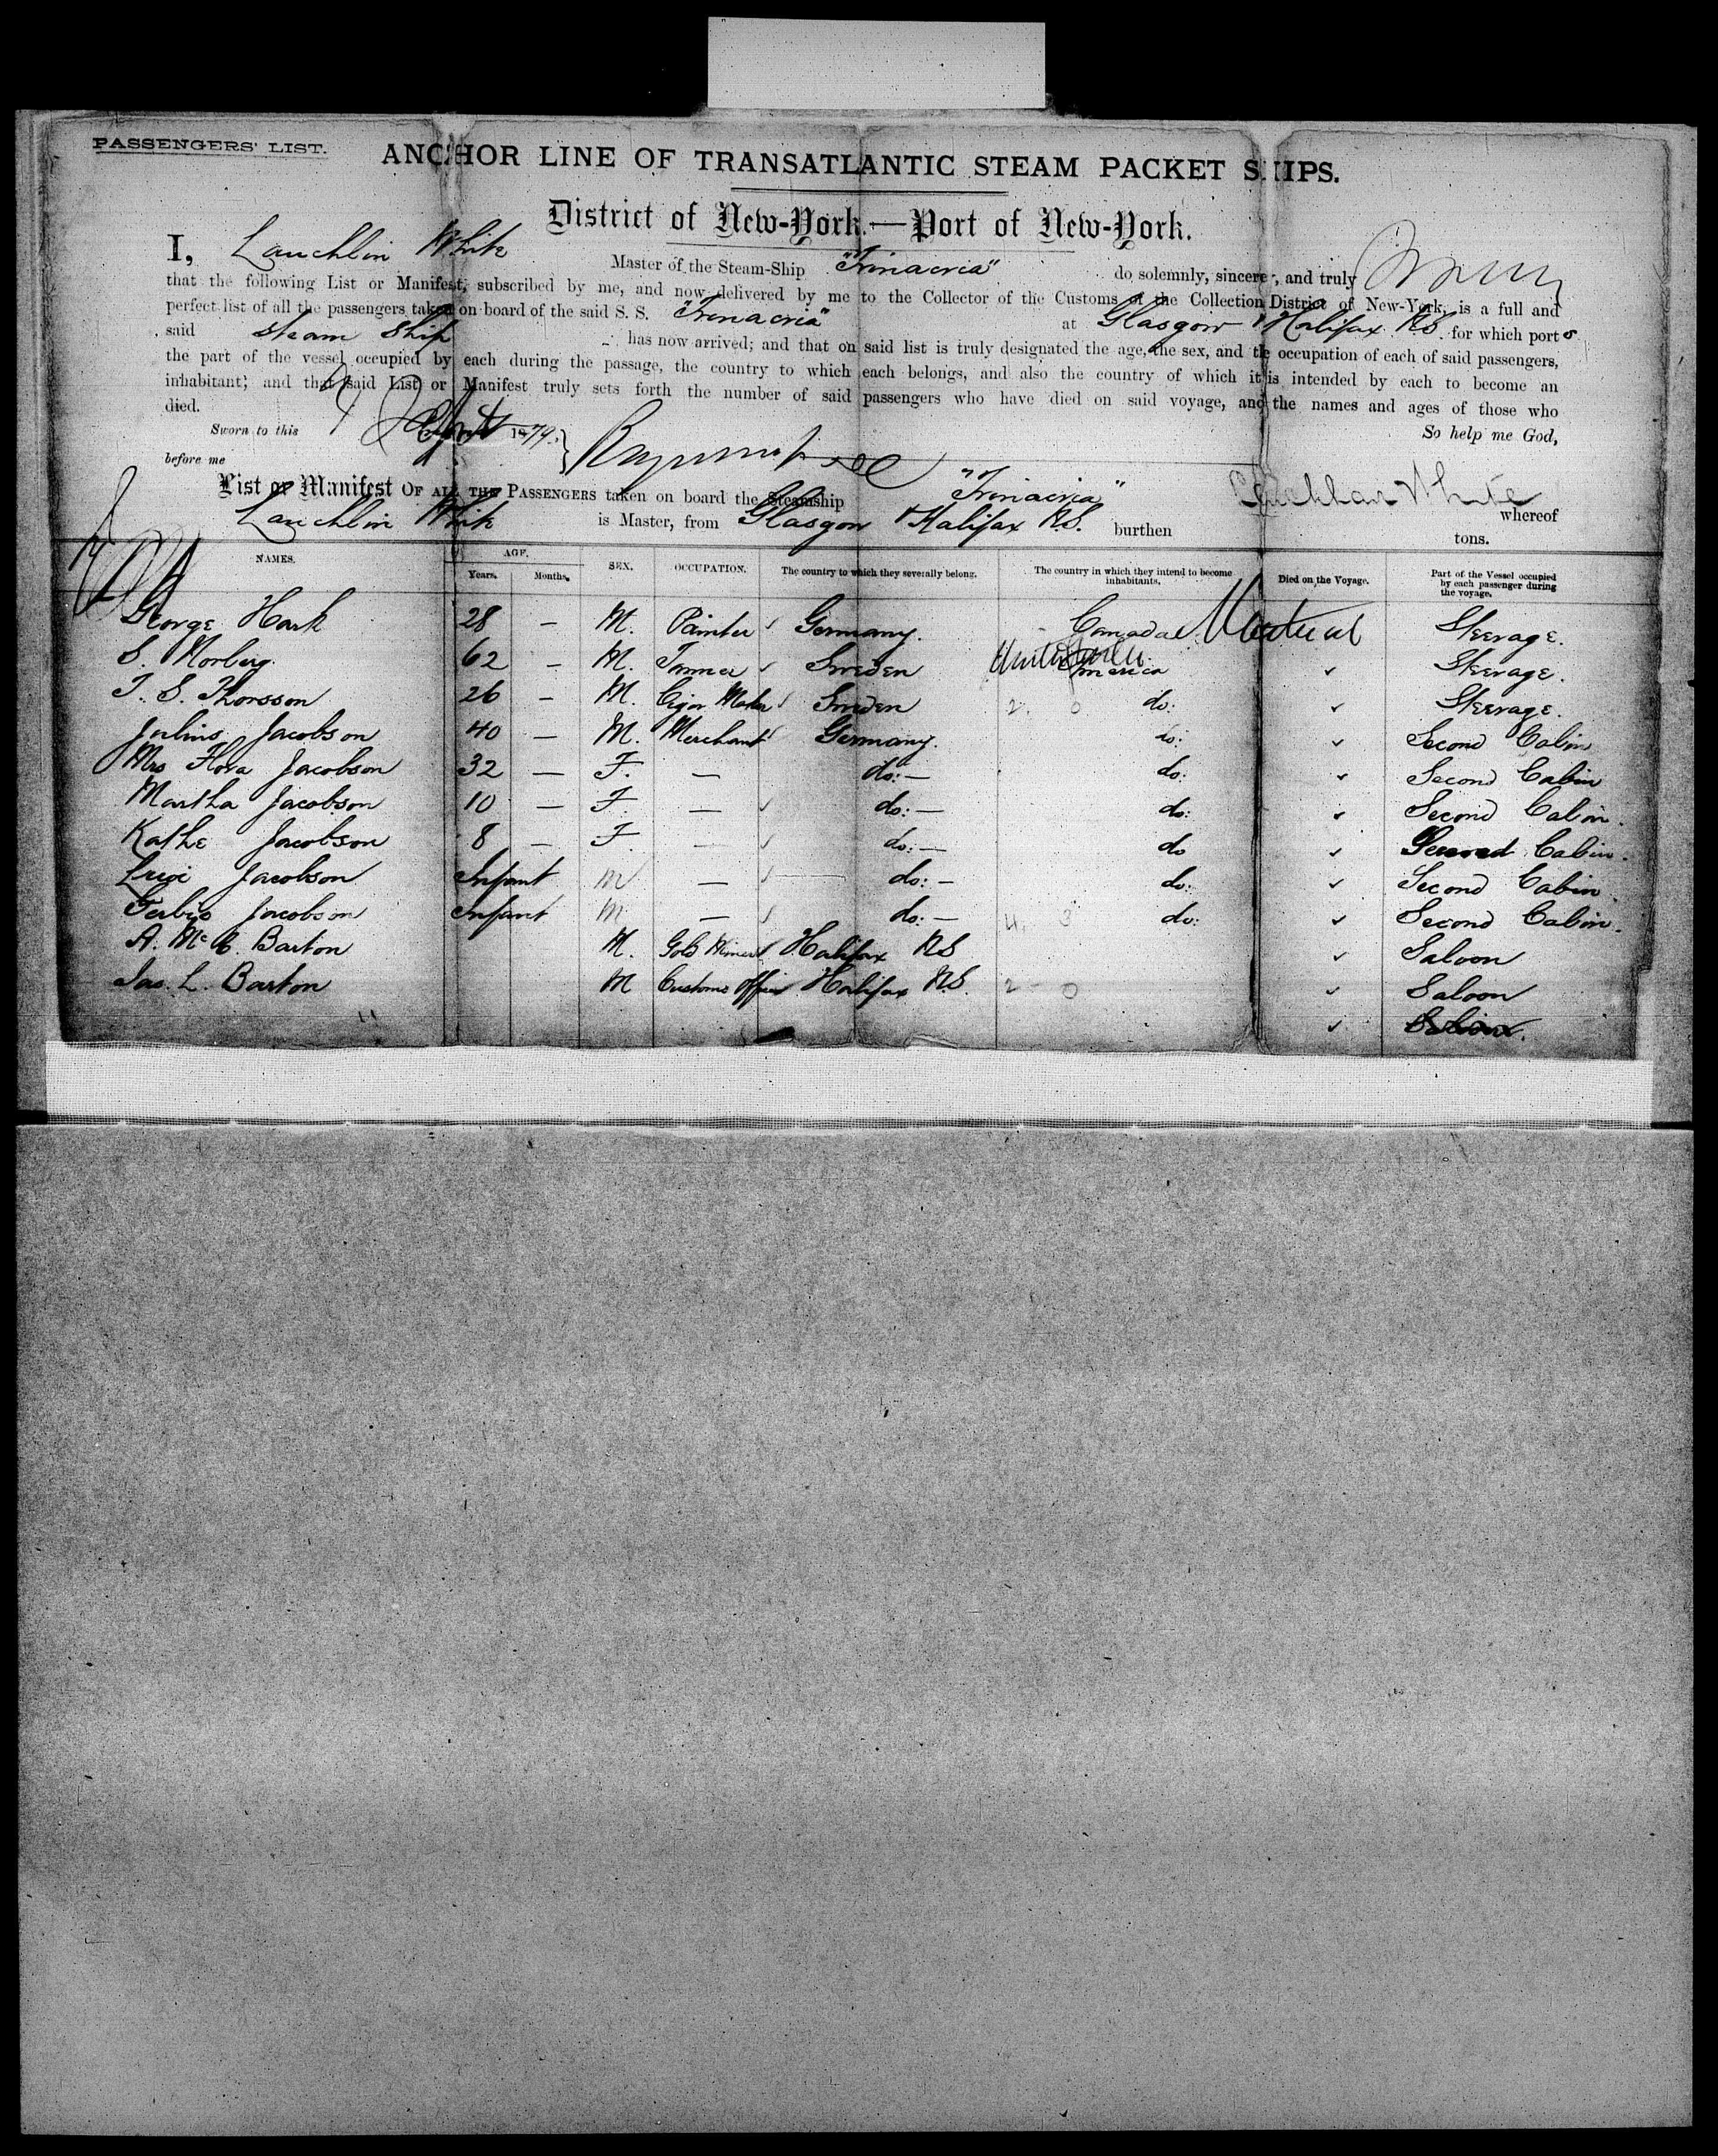 PASSENGERS' LIST.
ANCHOR LINE OF TRANSATLANTIC STEAM PACKET SHIPS.
District of New-York.—Port of New-York.
I, Lauchlin White Master of the Steam-Ship "Trinacria" do solemnly, sincerely, and truly
that the following List or Manifest, subscribed by me, and now delivered by me to the Collector of the Customs of the Collection District of New-York, is a full and
perfect list of all the passengers taken on board of the said S. S. "Trinacria" at Glasgow & Halifax N.S. for which ports
said Steam Ship has now arrived; and that on said list is truly designated the age, the sex, and the occupation of each of said passengers,
the part of the vessel occupied by each during the passage, the country to which each belongs, and also the country of which it is intended by each to become an
inhabitant; and that said List or Manifest truly sets forth the number of said passengers who have died on said voyage, and the names and ages of those who
died.
So help me God,
Sworn to this 9 Sept 1879.
before me
Lauchlan White
List or Manifest OF ALL THE PASSENGERS taken on board the Steamship "Trinacria" whereof
Lauchlin White is Master, from Glasgow & Halifax N.S. burthen tons.
NAMES. AGE. Years. Months. SEX. OCCUPATION. The country to which they severally belong. The country in which they intend to become inhabitants. Died on the Voyage. Part of the Vessel occupied by each passenger during the voyage.
George Hark 28 — M. Painter Germany. Canada Steerage.
S. Norberg. 62 — M. Sweden America Steerage.
T. S. Thorsson 26 — M. Cigar Maker Sweden do: Steerage.
Julius Jacobson 40 — M. Merchant Germany. do: Second Cabin
Mrs Flora Jacobson 32 — F. — do:— do: Second Cabin
Martha Jacobson 10 — F — do:— do: Second Cabin.
Kathe Jacobson 8 — F. — do:— do Second Cabin.
Jacobson Infant M — do:— do: Second Cabin
Jacobson Infant M — do:— do: Second Cabin.
A. Mc Barton M. Gold Miner Halifax NS Saloon
Jas. L. Barton M Customs Officer Halifax N.S. Saloon